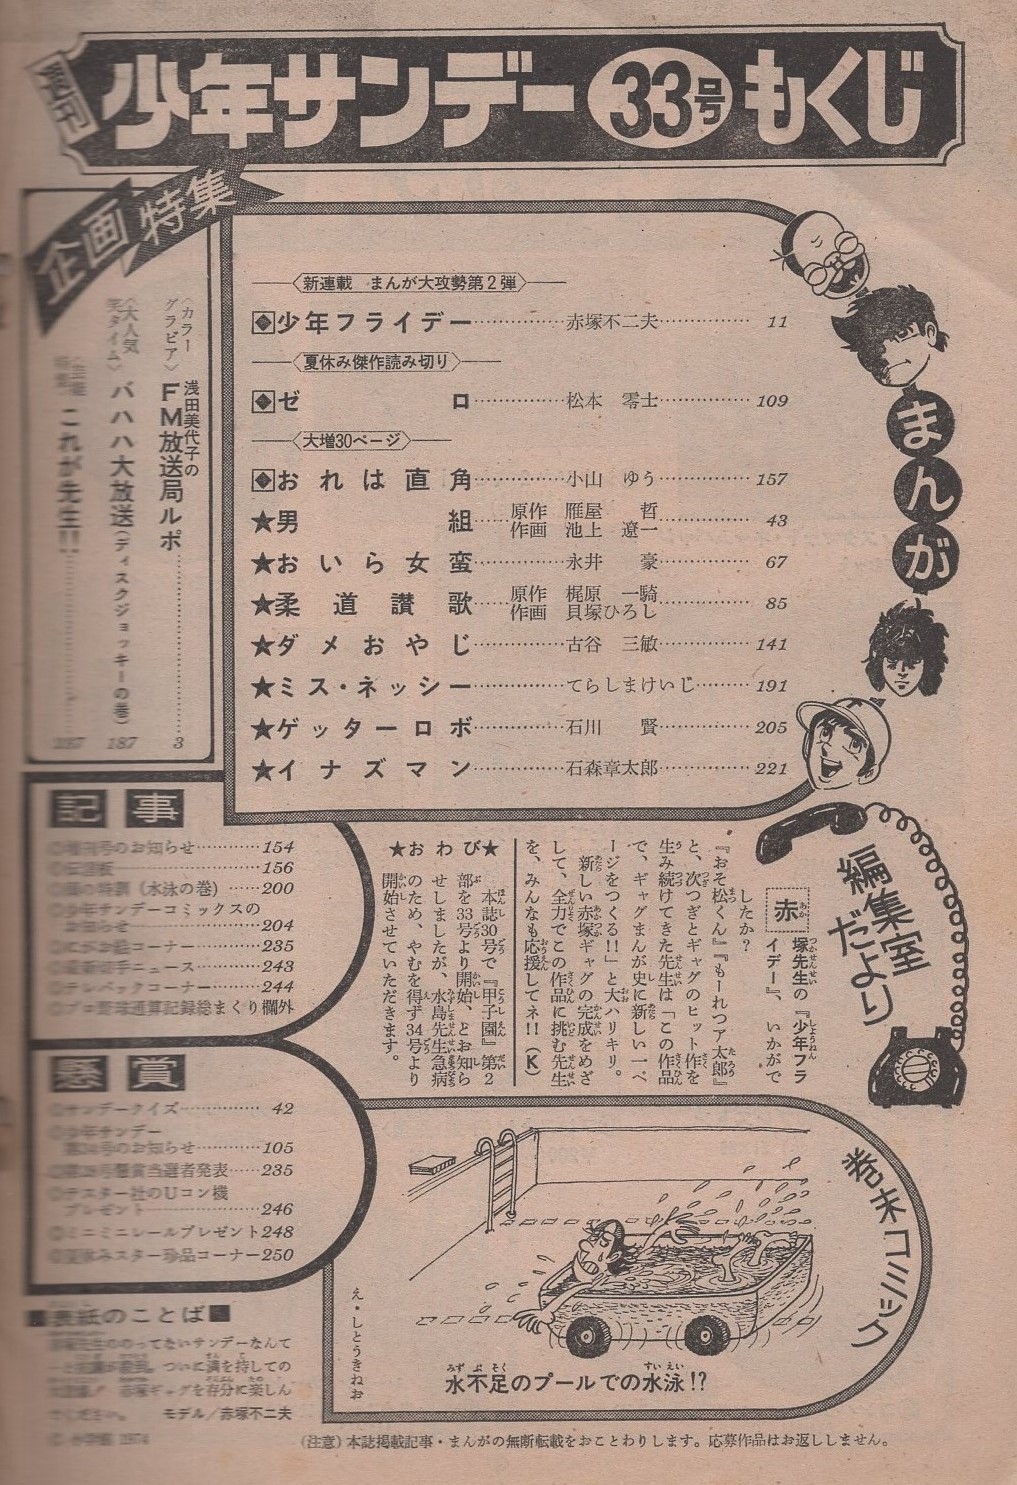 週刊 少年サンデー 33号 もくじ
企画特集
〈カラーグラビア〉
浅田美代子の
FM放送局ルポ……3
〈大人気笑タイム〉
バハハ大放送(ディスクジョッキーの巻)……187
これが先生!!
〈新連載 まんが大攻勢第2弾〉
少年フライデー……赤塚不二夫……11
〈夏休み傑作読み切り〉
ゼロ……松本 零士……109
〈大増30ページ〉
おれは直角……小山 ゆう……157
★男組……原作 雁屋 哲
作画 池上 遼一……43
★おいら女蛮……永井 豪……67
★柔道讃歌……原作 梶原 一騎
作画 貝塚ひろし……85
★ダメおやじ……古谷 三敏……141
★ミス・ネッシー……てらしまけいじ……191
★ゲッターロボ……石川 賢……205
★イナズマン……石森章太郎……221
まんが
記事
増刊号のお知らせ……154
伝言板……156
(水泳の巻)……200
少年サンデーコミックスの
お知らせ……204
にがお絵コーナー……235
最新切手ニュース……243
テレパックコーナー……244
プロ野球通算記録総まくり欄外
懸賞
サンデークイズ……42
少年サンデー
第34号のお知らせ……105
懸賞当選者発表……235
テスター社のUコン機
プレゼント……246
ミニミニレールプレゼント248
夏休みスター珍品コーナー250
■表紙のことば■
赤塚先生ののってないサンデーなんて
ついに満を持しての
赤塚ギャグを存分に楽しん
でください。 モデル/赤塚不二夫
©小学館 1974
編集室だより
赤塚先生の『少年フラ
イデー』、いかがで
したか?
『おそ松くん』『もーれつア太郎』
と、次つぎとギャグのヒット作を
生み続けてきた先生は「この作品
で、ギャグまんが史に新しい一ペ
ージをつくる!!」と大ハリキリ。
新しい赤塚ギャグの完成をめざ
して、全力でこの作品に挑む先生
を、みんなも応援してネ!!(K)
★おわび★
本誌30号で『甲子園』第2
部を33号より開始、とお知ら
せしましたが、水島先生急病
のため、やむを得ず34号より
開始させていただきます。
巻末コミック
え・しとうきねお
水不足のプールでの水泳!?
(注意)本誌掲載記事・まんがの無断転載をおことわりします。応募作品はお返ししません。